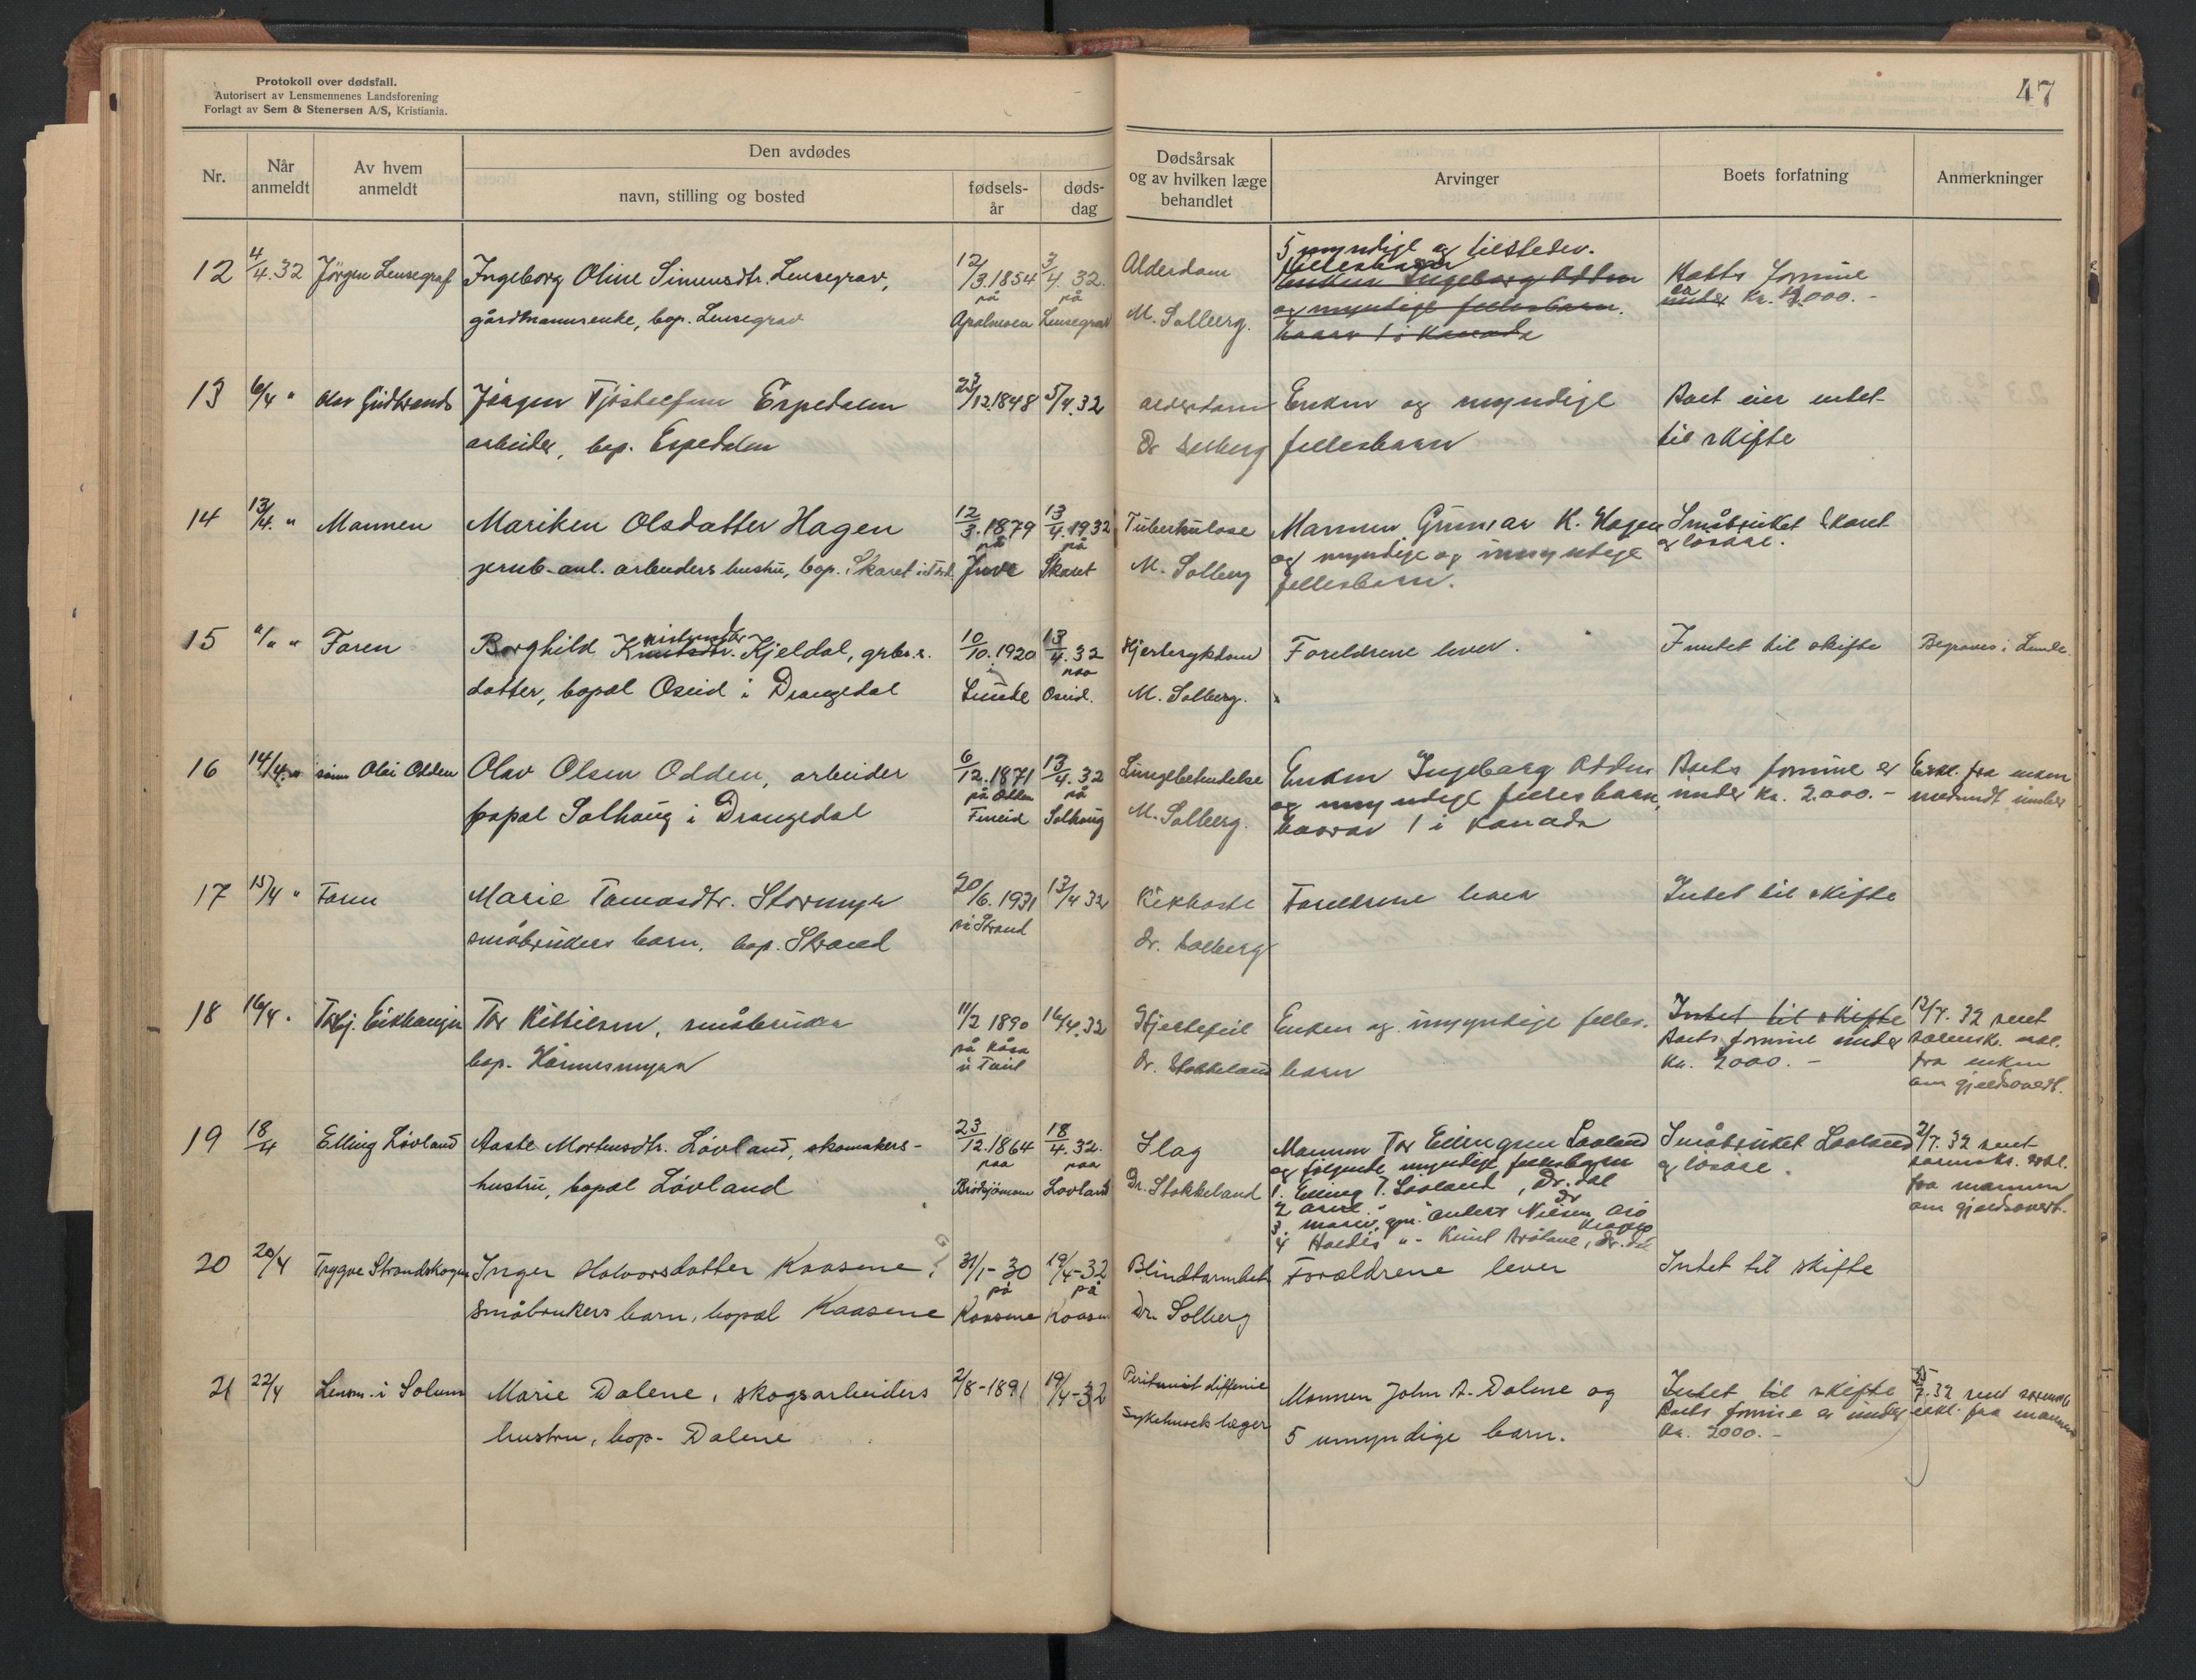 Protokoll over dødsfall.
Autorisert av Lensmennenes Landsforening
Forlagt av Sem & Stenersen A/S, Kristiania.
47
Nr.
Når anmeldt
Av hvem anmeldt
Den avdødes
navn, stilling og bosted
fødsels-år
døds-dag
Dødsårsak og av hvilken læge behandlet
Arvinger
Boets forfatning
Anmerkninger
12 4/4.32 Jörgen Lensegraf Ingeborg Oline Simensdtr. Lensegrav, 12/3.1854 3/4.32. Alderdom 5 myndige og tilstedev.
fellesbarn
Enken Ingeborg Odden
gårdmannsenke, bop. Lensegrav på på Lensegrav M. Solberg. og myndige fellesbarn.
hvorav 1 i Kanada
Boets formue
er under Kr. 2000.-
13 6/4 " Olav Gudbrands Jörgen Tjöstelfsen Espedalen /12.1848 5/4.32 Alderdom Enken og myndige Boet eier intet
arbeider, bop. Espedalen Dr Solberg fellesbarn til skifte
14 13/4. " Mannen Mariken Olsdatter Hagen 12/3.1879 13/4.1932 Tuberkulose Mannen Gunnar K. Hagen Småbruket Skaret
og myndige og umyndige og lösöre.
jernb.anl. arbeiders hustru, bop. Skaret i på Skaret M. Solberg fellesbarn.
15 "/" " Faren Borghild Knutsdtr. Kjeldal, grbr.s. 10/10.1920 13/4.32 Hjertesykdom Foreldrene lever. Intet til skifte Begraves i Lunde.
datter, bopæl Oseid i Drangedal i Lunde paa Oseid. M. Solberg.
16 14/4. " sönn Olai Odden Olav Olsen Odden, arbeider 6/12.1871 13/4.32 Lungebetendelse Enken Ingeborg Odden Boets formue er Erkl. fra enken
bopæl Solhaug i Drangedal på Odden på Solhaug M. Solberg. og myndige fellesbarn, under Kr. 2.000.-
hvorav 1 i Kanada
17 15/4 " Faren Marie Tomasdtr. Stormyr 20/6.1931 13/4 32 Kikhoste Foreldrene lever Intet til skifte
småbrukers barn, bop. Strand på Strand Dr. Solberg
18 16/4. Torbj. Eikhaugen Tor Kittilsen, småbruker 11/2 1890 16/4.32 Hjertefeil Enken og umyndige felles- Intet til skifte 12/7.32 sent
bop. Hönnesmyra på Kåsa Dr. Stokkeland barn Boets formue under
Kr. 2000.-
sorensk. erkl.
fra enken
om gjeldsovert.
19 18/4 Elling Lövland Aaste Mortensdtr. Lövland, skomakers- 23/12.1864 18/4.32. Slag Mannen Tor Ellingsen Lövland Småbruket Lövland 2/7.32 sent
hustru, bopæl Lövland paa paa Lovland Dr. Stokkeland og fölgende myndige fellesbarn og lösöre. sorensk. erkl.
1. Elling T. Lövland, Dr.dal fra mannen
om gjeldsovert.
20 20/4 Trygve Strandskogen Inger Halvorsdatter Kaasene, 31/1-30 19/4-32 Blindtarmbet. Forældrene lever Intet til skifte
småbrukers barn, bopæl Kaasene på Kaasene på Dr. Solberg
21 22/4 Lensm. i Solum Marie Dalene, skogsarbeiders 2/8-1891 19/4-32 Mannen John A. Dalene og Intet til skifte
hustru, bop. Dalene Sykehusets læger 5 umyndige barn. Boets formue er under
Kr. 2000.-
erkl. fra mannen